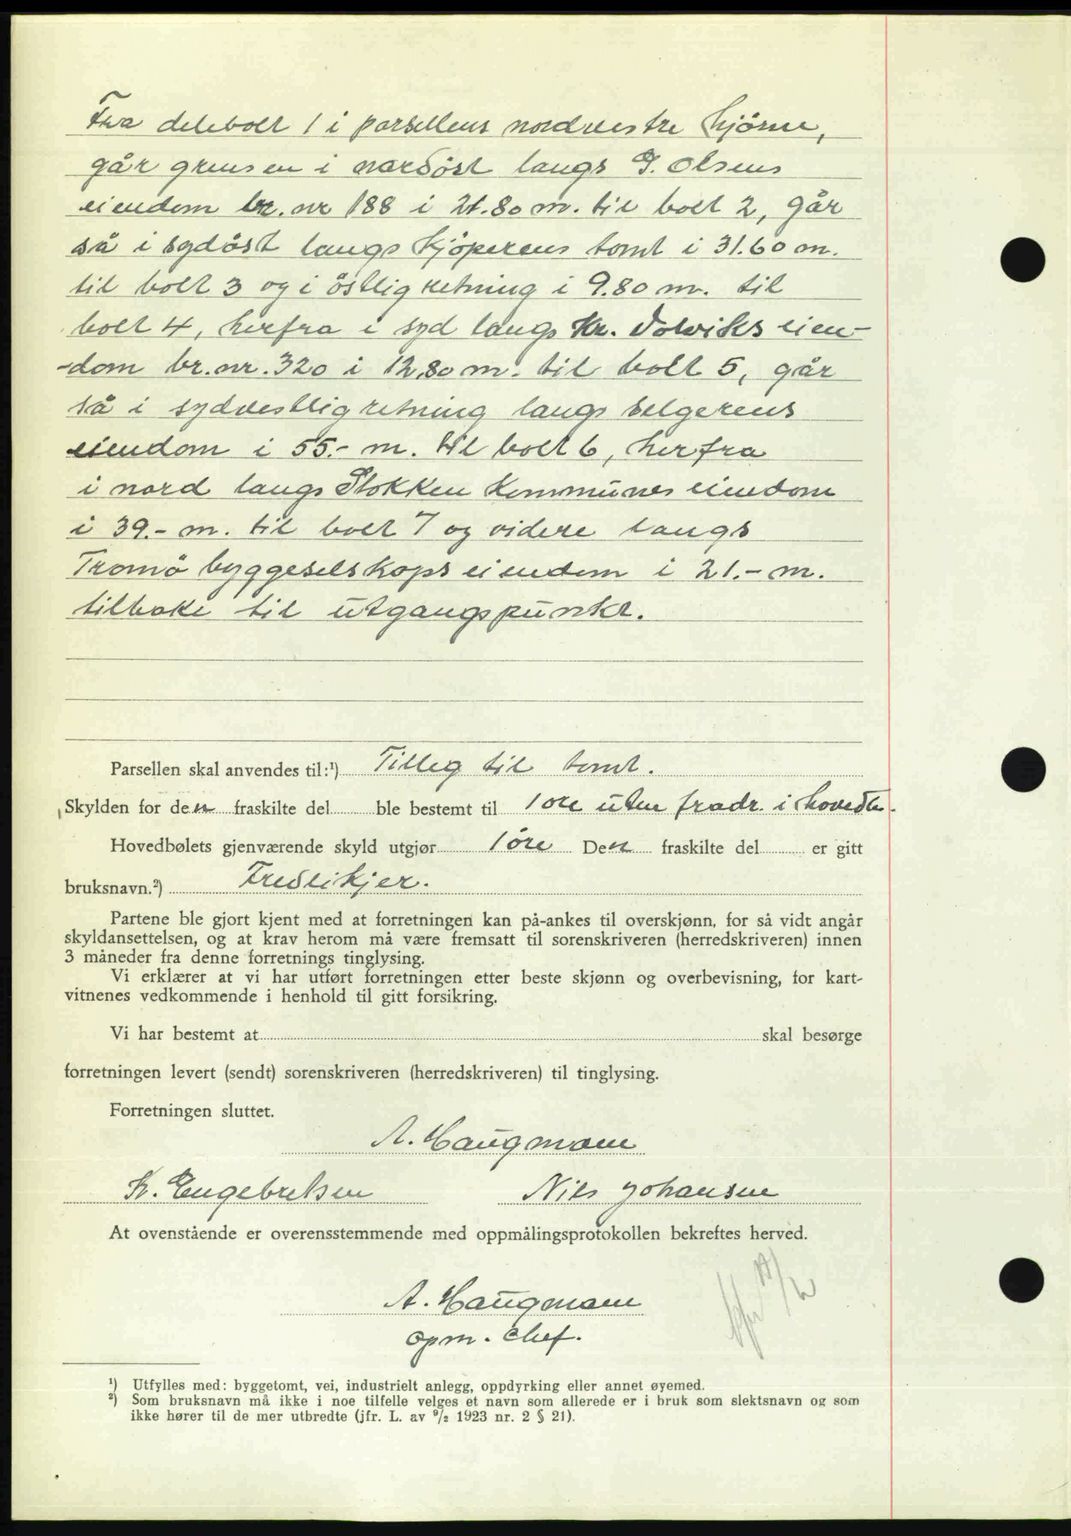 Fra delebolt 1 i parsellens nordvestre hjörne,
går grensen i nordöst langs G. Olsens
eiendom br. nr 188 i 21.80 m. til bolt 2, går
så i sydöst langs kjöperens tomt i 31.60 m.
til bolt 3 og i östlig retning i 9.80 m. til
bolt 4, herfra i syd langs Kr. Dolviks eien-
-dom br. nr. 320 i 12,80 m. til bolt 5, går
så i sydvestlig retning langs selgerens
eiendom i 55.- m. til bolt 6, herfra
i nord langs Stokken Kommunes eiendom
i 39.- m. til bolt 7 og videre langs
Tromö byggeselskaps eiendom i 21.- m.
tilbake til utgangspunkt.
Parsellen skal anvendes til:¹) Tilleg til tomt.
Skylden for den fraskilte del ble bestemt til 1 öre uten fradr. i hovedb.
Hovedbølets gjenværende skyld utgjør 1 öre Den fraskilte del er gitt
bruksnavn.²) Fredlikjer.
Partene ble gjort kjent med at forretningen kan på-ankes til overskjønn, for så vidt angår
skyldansettelsen, og at krav herom må være fremsatt til sorenskriveren (herredskriveren) innen
3 måneder fra denne forretnings tinglysing.
Vi erklærer at vi har utført forretningen etter beste skjønn og overbevisning, for kart-
vitnenes vedkommende i henhold til gitt forsikring.
Vi har bestemt at skal besørge
forretningen levert (sendt) sorenskriveren (herredskriveren) til tinglysing.
Forretningen sluttet.
A. Haugmoen
K. Engebretsen Nils Johansen
At ovenstående er overensstemmende med oppmålingsprotokollen bekreftes herved.
A. Haugmoen
opm. chef.
¹) Utfylles med: byggetomt, vei, industrielt anlegg, oppdyrking eller annet øyemed.
²) Som bruksnavn må ikke i noe tilfelle velges et navn som allerede er i bruk som slektsnavn og som
ikke hører til de mer utbredte (jfr. L. av ⁹/₂ 1923 nr. 2 § 21).